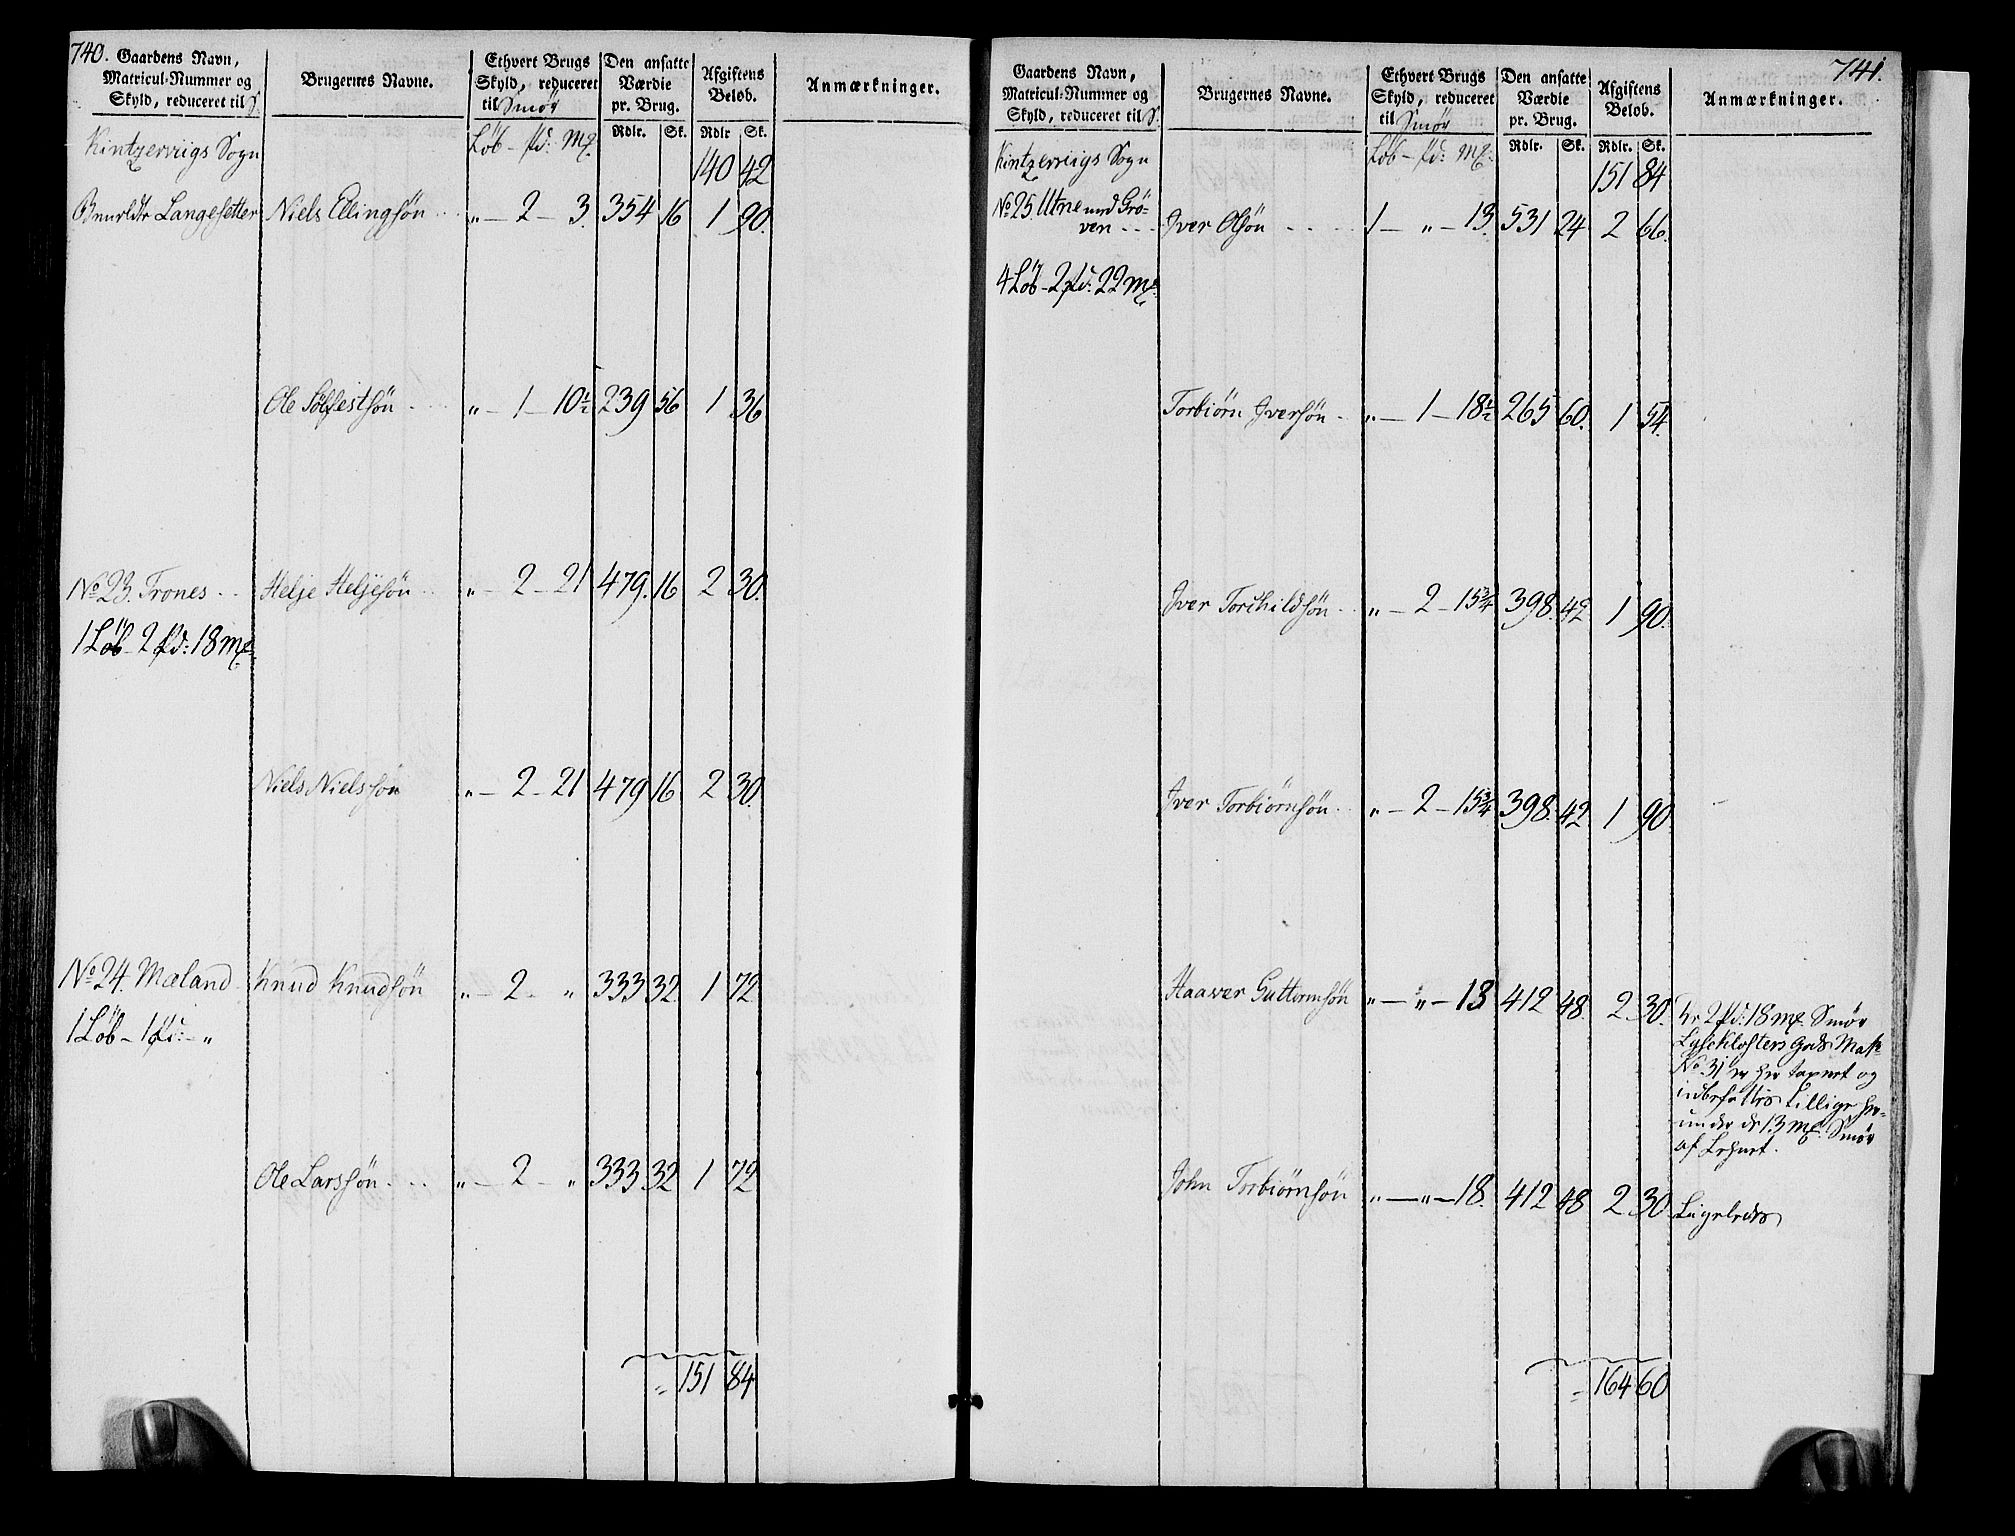 740.
Gaardens Navn,
Matricul-Nummer og
Skyld, reduceret til S.
Brugernes Navne.
Ethvert Brugs
Skyld, reduceret
til Smör
Den ansatte
Værdie
pr. Brug.
Afgiftens
Beløb.
Anmærkninger.
Löb - Pd: Mk.
Rdlr. Sk. Rdlr Sk.
Kintzerviigs Sogn 140 42
Langesetter Niels Ellingsön „ - 2 - 3. 354 16 1 90.
Ole Sölfestsön „ - 1 - 10½ 239 56 1 36
No 23. Trones Helje Heljesön „ - 2 - 21 479. 16 2 30.
1 Löb - 2 Pd: 18 mk.
Niels Nielssön „ - 2 - 21 479 16 2 30.
No 24. Mæland Knud Knudsön „ - 2 - „ 333 32 1 72
1 Löb - 1 Pd: - „
Ole Larssön „ - 2 - „ 333 32 1 72
= 151 84
741.
Gaardens Navn,
Matricul-Nummer og
Skyld, reduceret til S.
Brugernes Navne.
Ethvert Brugs
Skyld, reduceret
til Smör
Den ansatte
Værdie
pr. Brug.
Afgiftens
Beløb.
Anmærkninger.
Löb - Pd: Mk.
Rdlr. Sk. Rdlr. Sk.
Kintzerviigs Sogn 151 84
No 25. Utne med Grö-
ven Iver Olsön 1 - „ - 13. 531 24 2 66.
4 Löb - 2 Pd: 22 mk.
Torbiörn Iversön „ - 1 - 18½ 265 60. 1 54.
Iver Torchildsön „ - 2 - 15¾ 398. 42 1 90.
Iver Torbiörnsön „ - 2 - 15¾ 398. 42 1 90.
Haaver Guttormsön „ - „ - 13 412 48. 2 30.
2 Pd: 18 mk. Smör
Lyseklosters Gods Mat.
No. 31 er her taxeret og
indbefattes tillige her-
under de 13 mk. Smör
af Lehnet.
John Torbiörnsön „ - „ - 18. 412 48 2 30.
Ligeledes
= 164 60